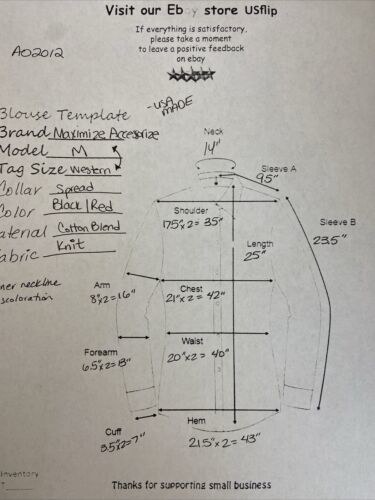 Visit our Eb y store USflip
If everything is satisfactory,
please take a moment
to leave a positive feedback
on ebay
A02012
- USA
MADE
Blouse Template
Brand Maximize Accessorize
Model M
Tag Size Western
Collar Spread
Color Black/Red
Material Cotton Blend
Fabric Knit
ner neckline
scoloration
Neck
14"
Sleeve A
9.5"
Shoulder
17.5"x2= 35"
Sleeve B
23.5"
Length
25"
Arm
8"x2=16"
Chest
21"x2= 42"
Waist
20"x2= 40"
Forearm
6.5"x2=13"
Hem
21.5"x2= 43"
Cuff
3.5"x2=7"
Inventory
Thanks for supporting small business